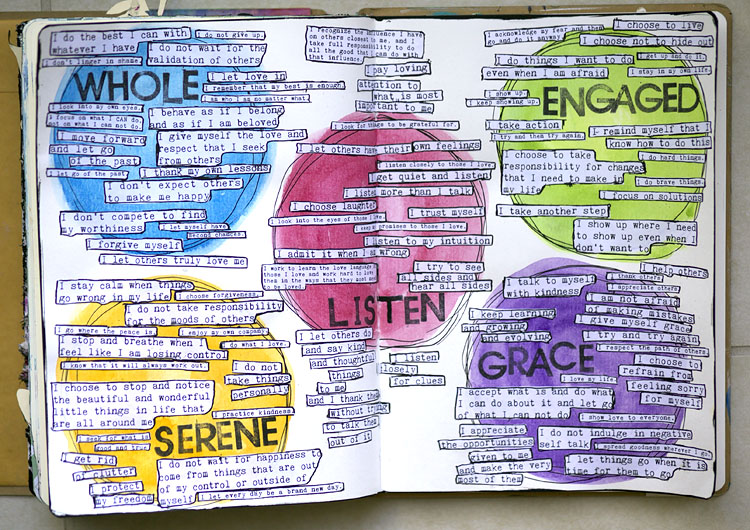 I do the best I can with
whatever I have
I do not give up.
I don't linger in shame.
I do not wait for the
validation of others
WHOLE
I let love in
I remember that my best is enough.
I am who I am no matter what.
I look into my own eyes.
I focus on what I CAN do,
not on what I can not do.
I behave as if I belong
and as if I am beloved
I move forward
and let go
of the past
I give myself the love and
respect that I seek
from others
I let go of the past.
I thank my own lessons
I don't expect others
to make me happy
I don't compete to find
my worthiness
I let myself have
second chances.
I forgive myself
I let others truly love me
I stay calm when things
go wrong in my life
I choose forgiveness.
I do not take responsibility
for the moods of others
I go where the peace is.
I enjoy my own company.
I stop and breathe when I
feel like I am losing control
I do what I love.
I know that it will always work out.
I do not
take things
personally
I choose to stop and notice
the beautiful and wonderful
little things in life that
are all around me
I practice kindness.
I seek for what is
good and true
SERENE
I get rid
of clutter
I protect
my freedom
I do not wait for happiness to
come from things that are out
of my control or outside of
myself
I let every day be a brand new day.
I recognize the influence I have
on others closest to me, and I
take full responsibility to do
all the good that I can do with
that influence.
I pay loving
attention to
what is most
important to me
I look for image to be grateful for.
I let others have their own feelings
I listen closely to those I love.
I get quiet and listen
I listen more than I talk
I choose laughter
I look into the eyes of those I love.
I trust myself
I keep my promises to those I love.
I listen to my intuition
I admit it when I am wrong
I work to learn the love language of
those I love and work hard to love
them in the ways that they most need
to be loved.
I try to see
all sides and
hear all sides
LISTEN
I let others do
and say kind
and thoughtful
things
to me
and I thank them
without trying
to talk them
out of it
I listen
closely
for clues
I acknowledge my fear and then
go and do it anyway
I choose to live
I choose not to hide out
I do things I want to do
even when I am afraid
I get up and do it.
I stay in my own life.
I show up.
I keep showing up.
ENGAGED
I take action
I try and then try again.
I remind myself that I
know how to do this
I choose to take
responsibility for changes
that I need to make in
my life
I do hard things.
I do brave things.
I focus on solutions
I take another step
I show up where I need
to show up even when I
don't want to
I help others
I talk to myself
with kindness
I thank others
I appreciate others
I am not afraid
of making mistakes
I keep learning
and growing
and evolving
I give myself grace
I try and try again
I respect the path of others.
GRACE
I choose to
refrain from
feeling sorry
for myself
I love my life.
I accept what is and do what
I can do about it and let go
of what I can not do
I show love to everyone.
I appreciate
the opportunities
given to me
and make the very
most of them
I do not indulge in negative
self talk
I spread goodness wherever I go.
I let things go when it is
time for them to go